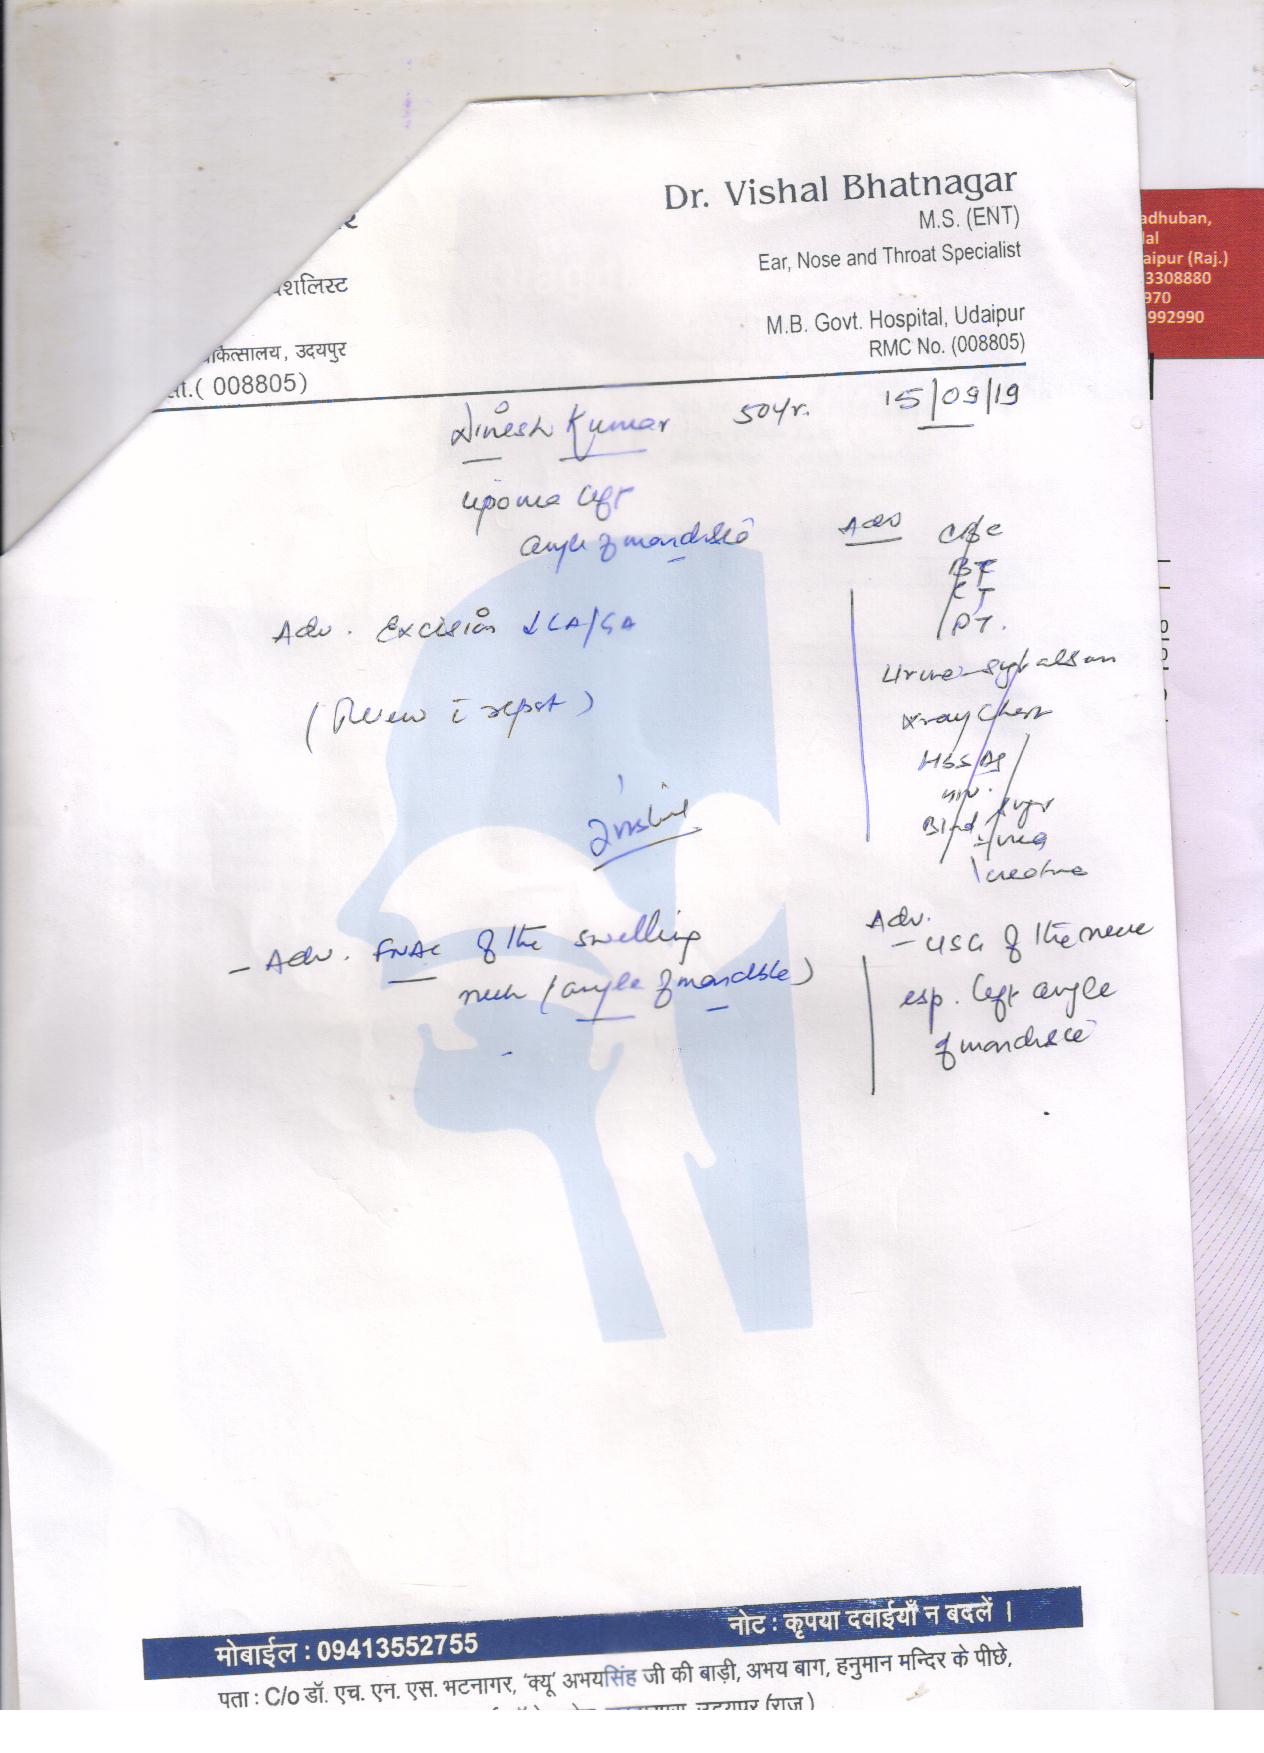 Dr. Vishal Bhatnagar
M.S. (ENT)
Ear, Nose and Throat Specialist
M.B. Govt. Hospital, Udaipur
RMC No. (008805)
शलिस्ट
कित्सालय, उदयपुर
( 008805)
adhuban,
lal
aipur (Raj.)
3308880
970
992990
Dinesh Kumar 50Yr. 15/09/19
Lipoma left
angle of mandible
Adv. Excision LA/GA
(Review c report)
Adv
CBC
BT
CT
PT.
Urine
Xray Chest
HBSAg
HIV.
Blood Sugar
Urea
Creatine
- Adv. FNAC of the swelling
neck (angle of mandible)
Adv.
- USG of the neck
esp. left angle
of mandible
मोबाईल : 09413552755
नोट : कृपया दवाईयाँ न बदलें ।
पता : C/o डॉ. एच. एन. एस. भटनागर, 'क्यू' अभयसिंह जी की बाड़ी, अभय बाग, हनुमान मन्दिर के पीछे,
उदयपुर (राज.)